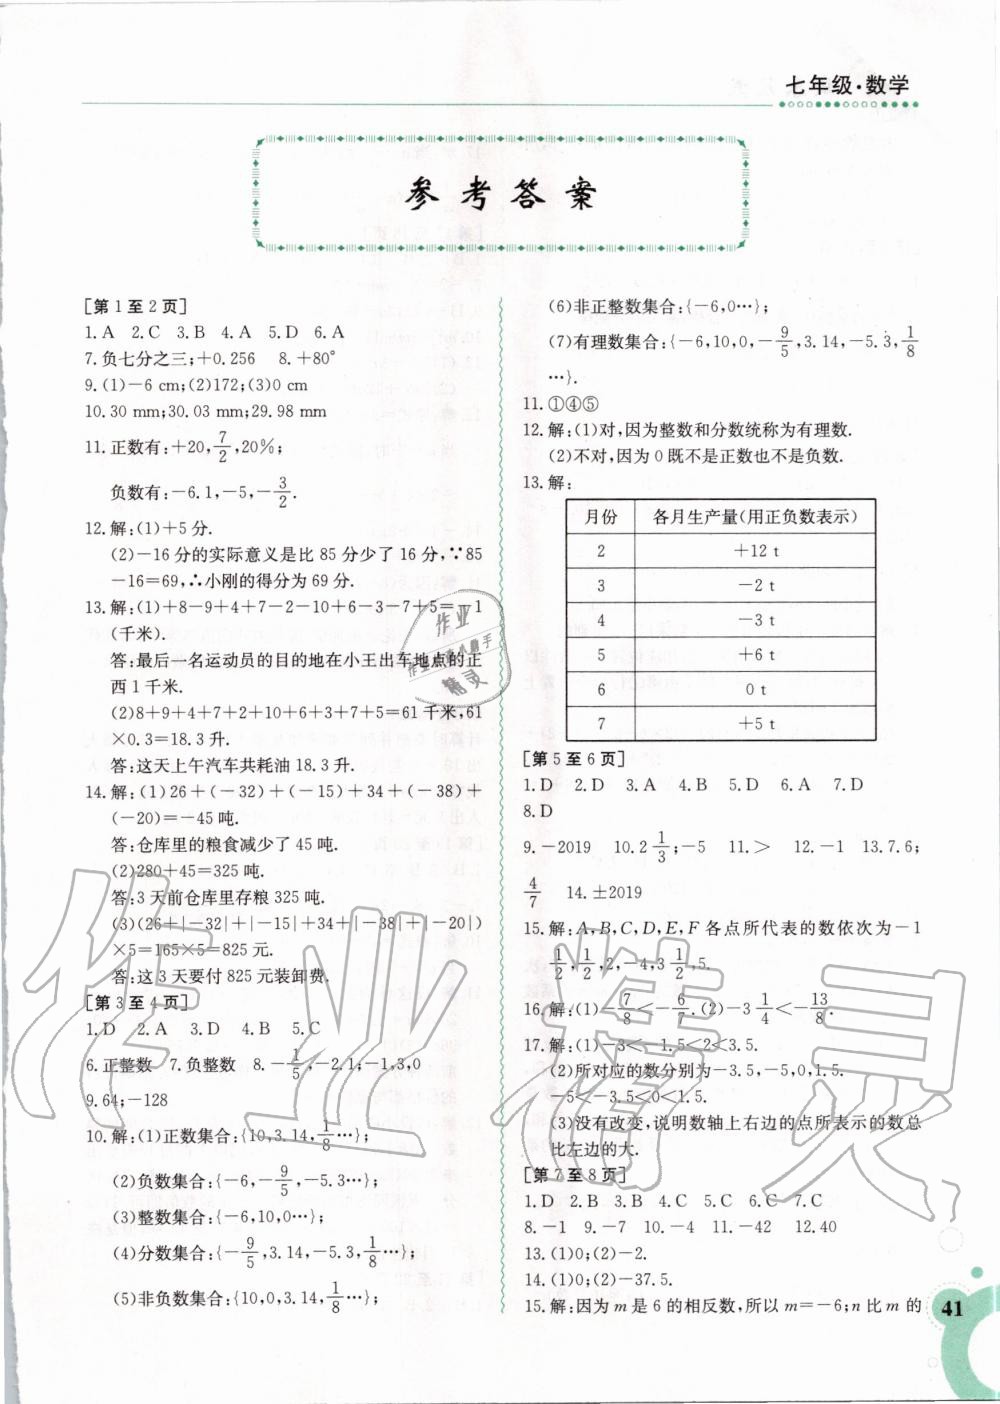 七年级·数学
参考答案
[第1至2页]
1.A 2.C 3.B 4.A 5.D 6.A
7.负七分之三;+0.256 8.+80°
9.(1)-6 cm;(2)172;(3)0 cm
10.30 mm;30.03 mm;29.98 mm
11.正数有:+20,7/2,20%;
负数有:-6.1,-5,-3/2.
12.解:(1)+5分.
(2)-16分的实际意义是比85分少了16分,∵85
-16=69,∴小刚的得分为69分.
13.解:(1)+8-9+4+7-2-10+6-3-7+5=-1
(千米).
答:最后一名运动员的目的地在小王出车地点的正
西1千米.
(2)8+9+4+7+2+10+6+3+7+5=61千米,61
×0.3=18.3升.
答:这天上午汽车共耗油18.3升.
14.解:(1)26+(-32)+(-15)+34+(-38)+
(-20)=-45吨.
答:仓库里的粮食减少了45吨.
(2)280+45=325吨.
答:3天前仓库里存粮325吨.
(3)(26+|-32|+|-15|+34+|-38|+|-20|)
×5=165×5=825元.
答:这3天要付825元装卸费.
[第3至4页]
1.D 2.A 3.D 4.B 5.C
6.正整数 7.负整数 8.-1/5,-2.1,-1,3,0
9.64;-128
10.解:(1)正数集合:{10,3.14,1/8…};
(2)负数集合:{-6,-9/5,-5.3…};
(3)整数集合:{-6,10,0…};
(4)分数集合:{-9/5,3.14,-5.3,1/8…};
(5)非负数集合:{10,0,3.14,1/8…};
(6)非正整数集合:{-6,0…};
(7)有理数集合:{-6,10,0,-9/5,3.14,-5.3,1/8
…}.
11.①④⑤
12.解:(1)对,因为整数和分数统称为有理数.
(2)不对,因为0既不是正数也不是负数.
13.解:
月份 各月生产量(用正负数表示)
2 +12 t
3 -2 t
4 -3 t
5 +6 t
6 0 t
7 +5 t
[第5至6页]
1.D 2.D 3.A 4.B 5.D 6.A 7.D
8.D
9.-2019 10.2 1/3;-5 11.> 12.-1 13.7.6;
4/7 14.±2019
15.解:A,B,C,D,E,F各点所代表的数依次为-1
1/2,1/2,2,-4,3 1/2,5.
16.解:(1)-7/8<-6/7.(2)-3 1/4<-13/8.
17.解:(1)-3<-1.5<2<3.5.
(2)所对应的数分别为-3.5,-5,0,1.5.
-5<-3.5<0<1.5.
(3)没有改变,说明数轴上右边的点所表示的数总
比左边的大.
[第7至8页]
1.D 2.B 3.B 4.C 5.C 6.C 7.C
8.-1 9.-7 10.-4 11.-42 12.40
13.(1)0;(2)-2.
14.(1)0;(2)-37.5.
15.解:因为m是6的相反数,所以m=-6;n比m的
41
作业精灵